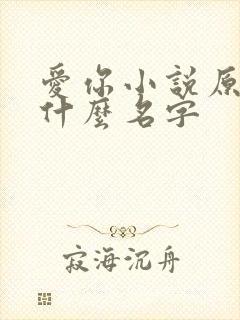 愛你小説原
什麼名字
寂海沉舟